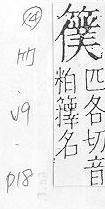 匹各切音
粕籜名
④
v9
-
p18